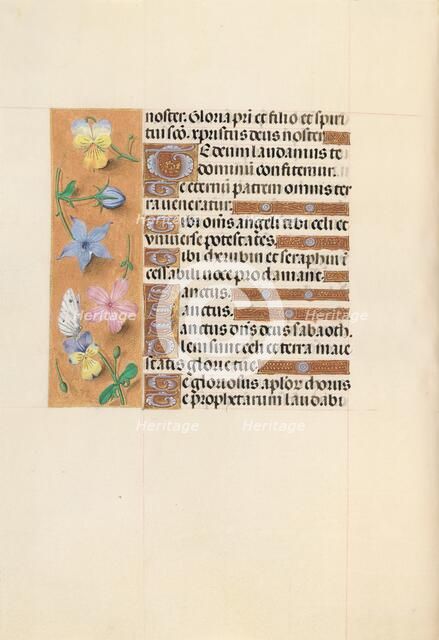 noster. Gloria pri et filio et spiri
tui sco. xpristus deus noster
Te deum laudamus te
dominum confitemur.
Te eternum patrem omnis ter
ra veneratur.
Tibi oms angeli tibi celi et
universe potestates.
Tibi cherubin et seraphin i
cessabili voce proclamant.
Sanctus.
Sanctus.
Sanctus dns deus sabaoth.
Pleni sunt celi et terra maie
statis glorie tue.
Te gloriosus aplor chorus
Te prophetarum laudabi
Heritage
Heritage
Heritage
Heritage
Heritage
Heritage